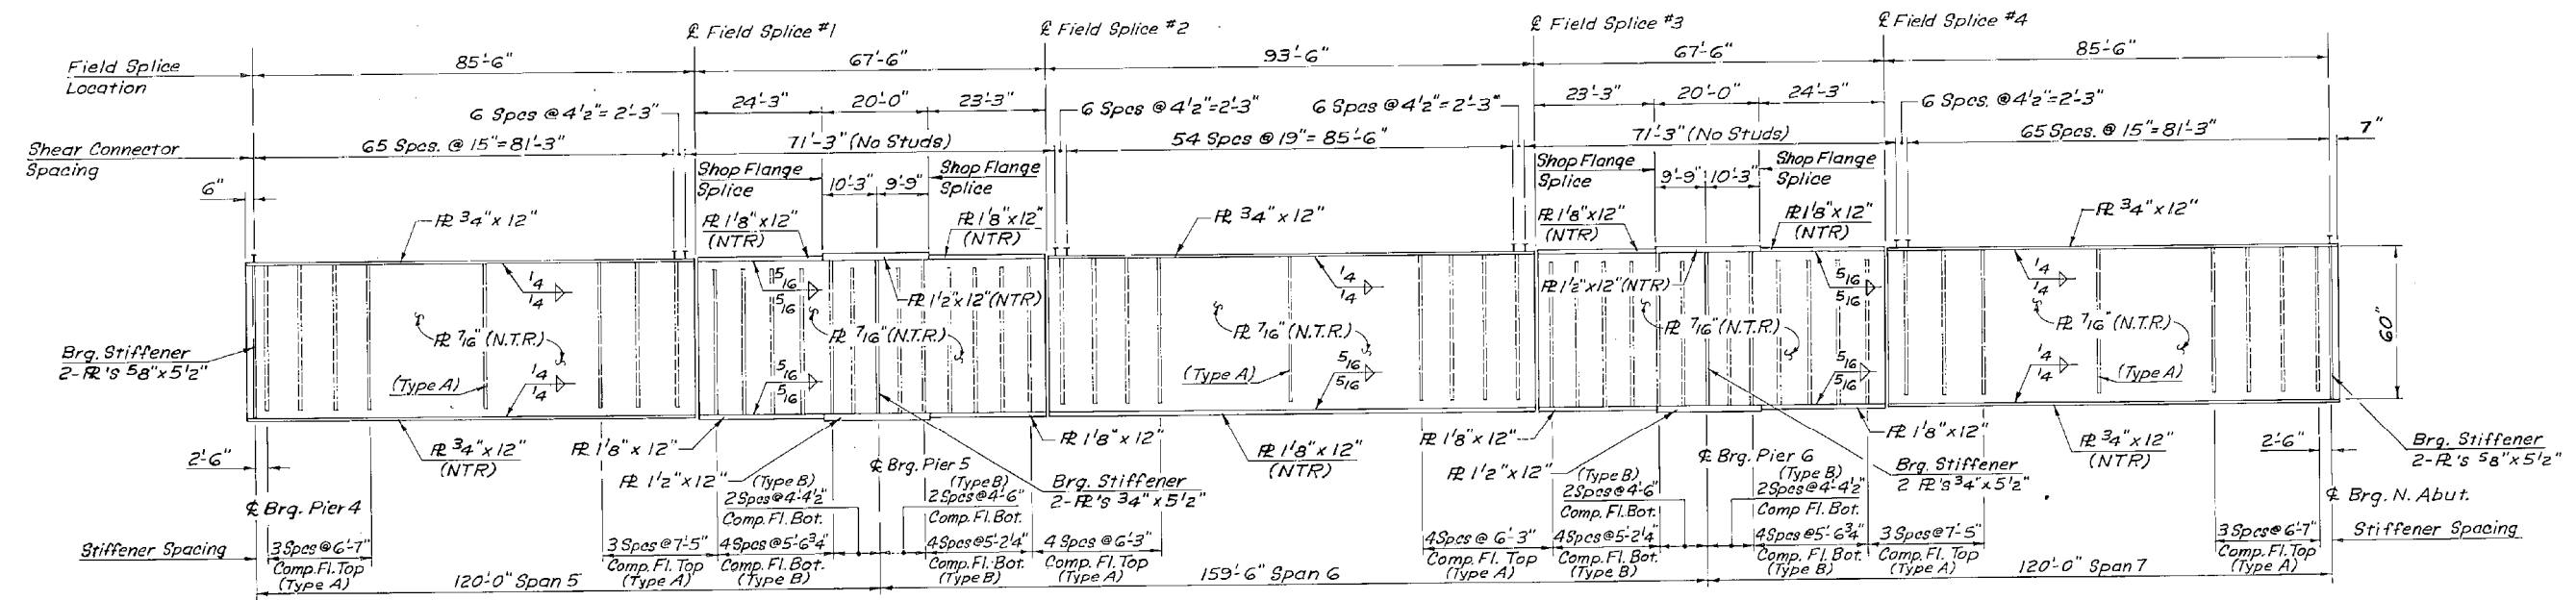 ℄ Field Splice #1
℄ Field Splice #2
℄ Field Splice #3
℄ Field Splice #4
Field Splice
Location
85'-6"
67'-6"
93'-6"
67'-6"
85'-6"
24'-3"
20'-0"
23'-3"
23'-3"
20'-0"
24'-3"
6 Spcs @ 4½" = 2'-3"
6 Spcs @ 4½" = 2'-3"
6 Spcs @ 4½" = 2'-3"
6 Spcs. @ 4½" = 2'-3"
Shear Connector
Spacing
65 Spcs. @ 15" = 81'-3"
71'-3" (No Studs)
54 Spcs @ 19" = 85'-6"
71'-3" (No Studs)
65 Spcs. @ 15" = 81'-3"
7"
6"
Shop Flange
Splice
10'-3"
9'-9"
Shop Flange
Splice
Shop Flange
Splice
9'-9"
10'-3"
Shop Flange
Splice
PL ¾" x 12"
PL 1⅛" x 12"
(NTR)
PL 1⅛" x 12"
(NTR)
PL ¾" x 12"
PL 1⅛" x 12"
(NTR)
PL 1⅛" x 12"
(NTR)
PL ¾" x 12"
1/4
1/4
5/16
5/16
PL 1½" x 12" (NTR)
1/4
1/4
PL 1½" x 12" (NTR)
5/16
5/16
1/4
1/4
PL 7/16" (N.T.R.)
PL 7/16" (N.T.R.)
PL 7/16" (N.T.R.)
PL 7/16" (N.T.R.)
PL 7/16" (N.T.R.)
60"
Brg. Stiffener
2-PL's ⅝" x 5½"
(Type A)
1/4
1/4
5/16
5/16
(Type A)
5/16
5/16
5/16
5/16
1/4
1/4
(Type A)
2'-6"
PL ¾" x 12"
(NTR)
PL 1⅛" x 12"
PL 1½" x 12"
PL 1⅛" x 12"
PL 1⅛" x 12"
(NTR)
PL 1⅛" x 12"
PL 1½" x 12"
PL 1⅛" x 12"
PL ¾" x 12"
(NTR)
2'-6"
Brg. Stiffener
2-PL's ⅝" x 5½"
℄ Brg. Pier 4
℄ Brg. Pier 5
Brg. Stiffener
2-PL's ¾" x 5½"
℄ Brg. Pier 6
Brg. Stiffener
2 PL's ¾" x 5½"
℄ Brg. N. Abut.
(Type B)
2 Spcs @ 4'-4½"
Comp. Fl. Bot.
(Type B)
2 Spcs @ 4'-6"
Comp. Fl. Bot.
(Type B)
2 Spcs @ 4'-6"
Comp. Fl. Bot.
(Type B)
2 Spcs @ 4'-4½"
Comp. Fl. Bot.
Stiffener Spacing
3 Spcs @ 6'-7"
Comp. Fl. Top
(Type A)
3 Spcs @ 7'-5"
Comp. Fl. Top
(Type A)
4 Spcs @ 5'-6¾"
Comp. Fl. Bot.
(Type B)
4 Spcs @ 5'-2¼"
Comp. Fl. Bot.
(Type B)
4 Spcs @ 6'-3"
Comp. Fl. Top
(Type A)
4 Spcs @ 6'-3"
Comp. Fl. Top
(Type A)
4 Spcs @ 5'-2¼"
Comp. Fl. Bot.
(Type B)
4 Spcs @ 5'-6¾"
Comp. Fl. Bot.
(Type B)
3 Spcs @ 7'-5"
Comp. Fl. Top
(Type A)
3 Spcs @ 6'-7"
Comp. Fl. Top
(Type A)
Stiffener Spacing
120'-0" Span 5
159'-6" Span 6
120'-0" Span 7